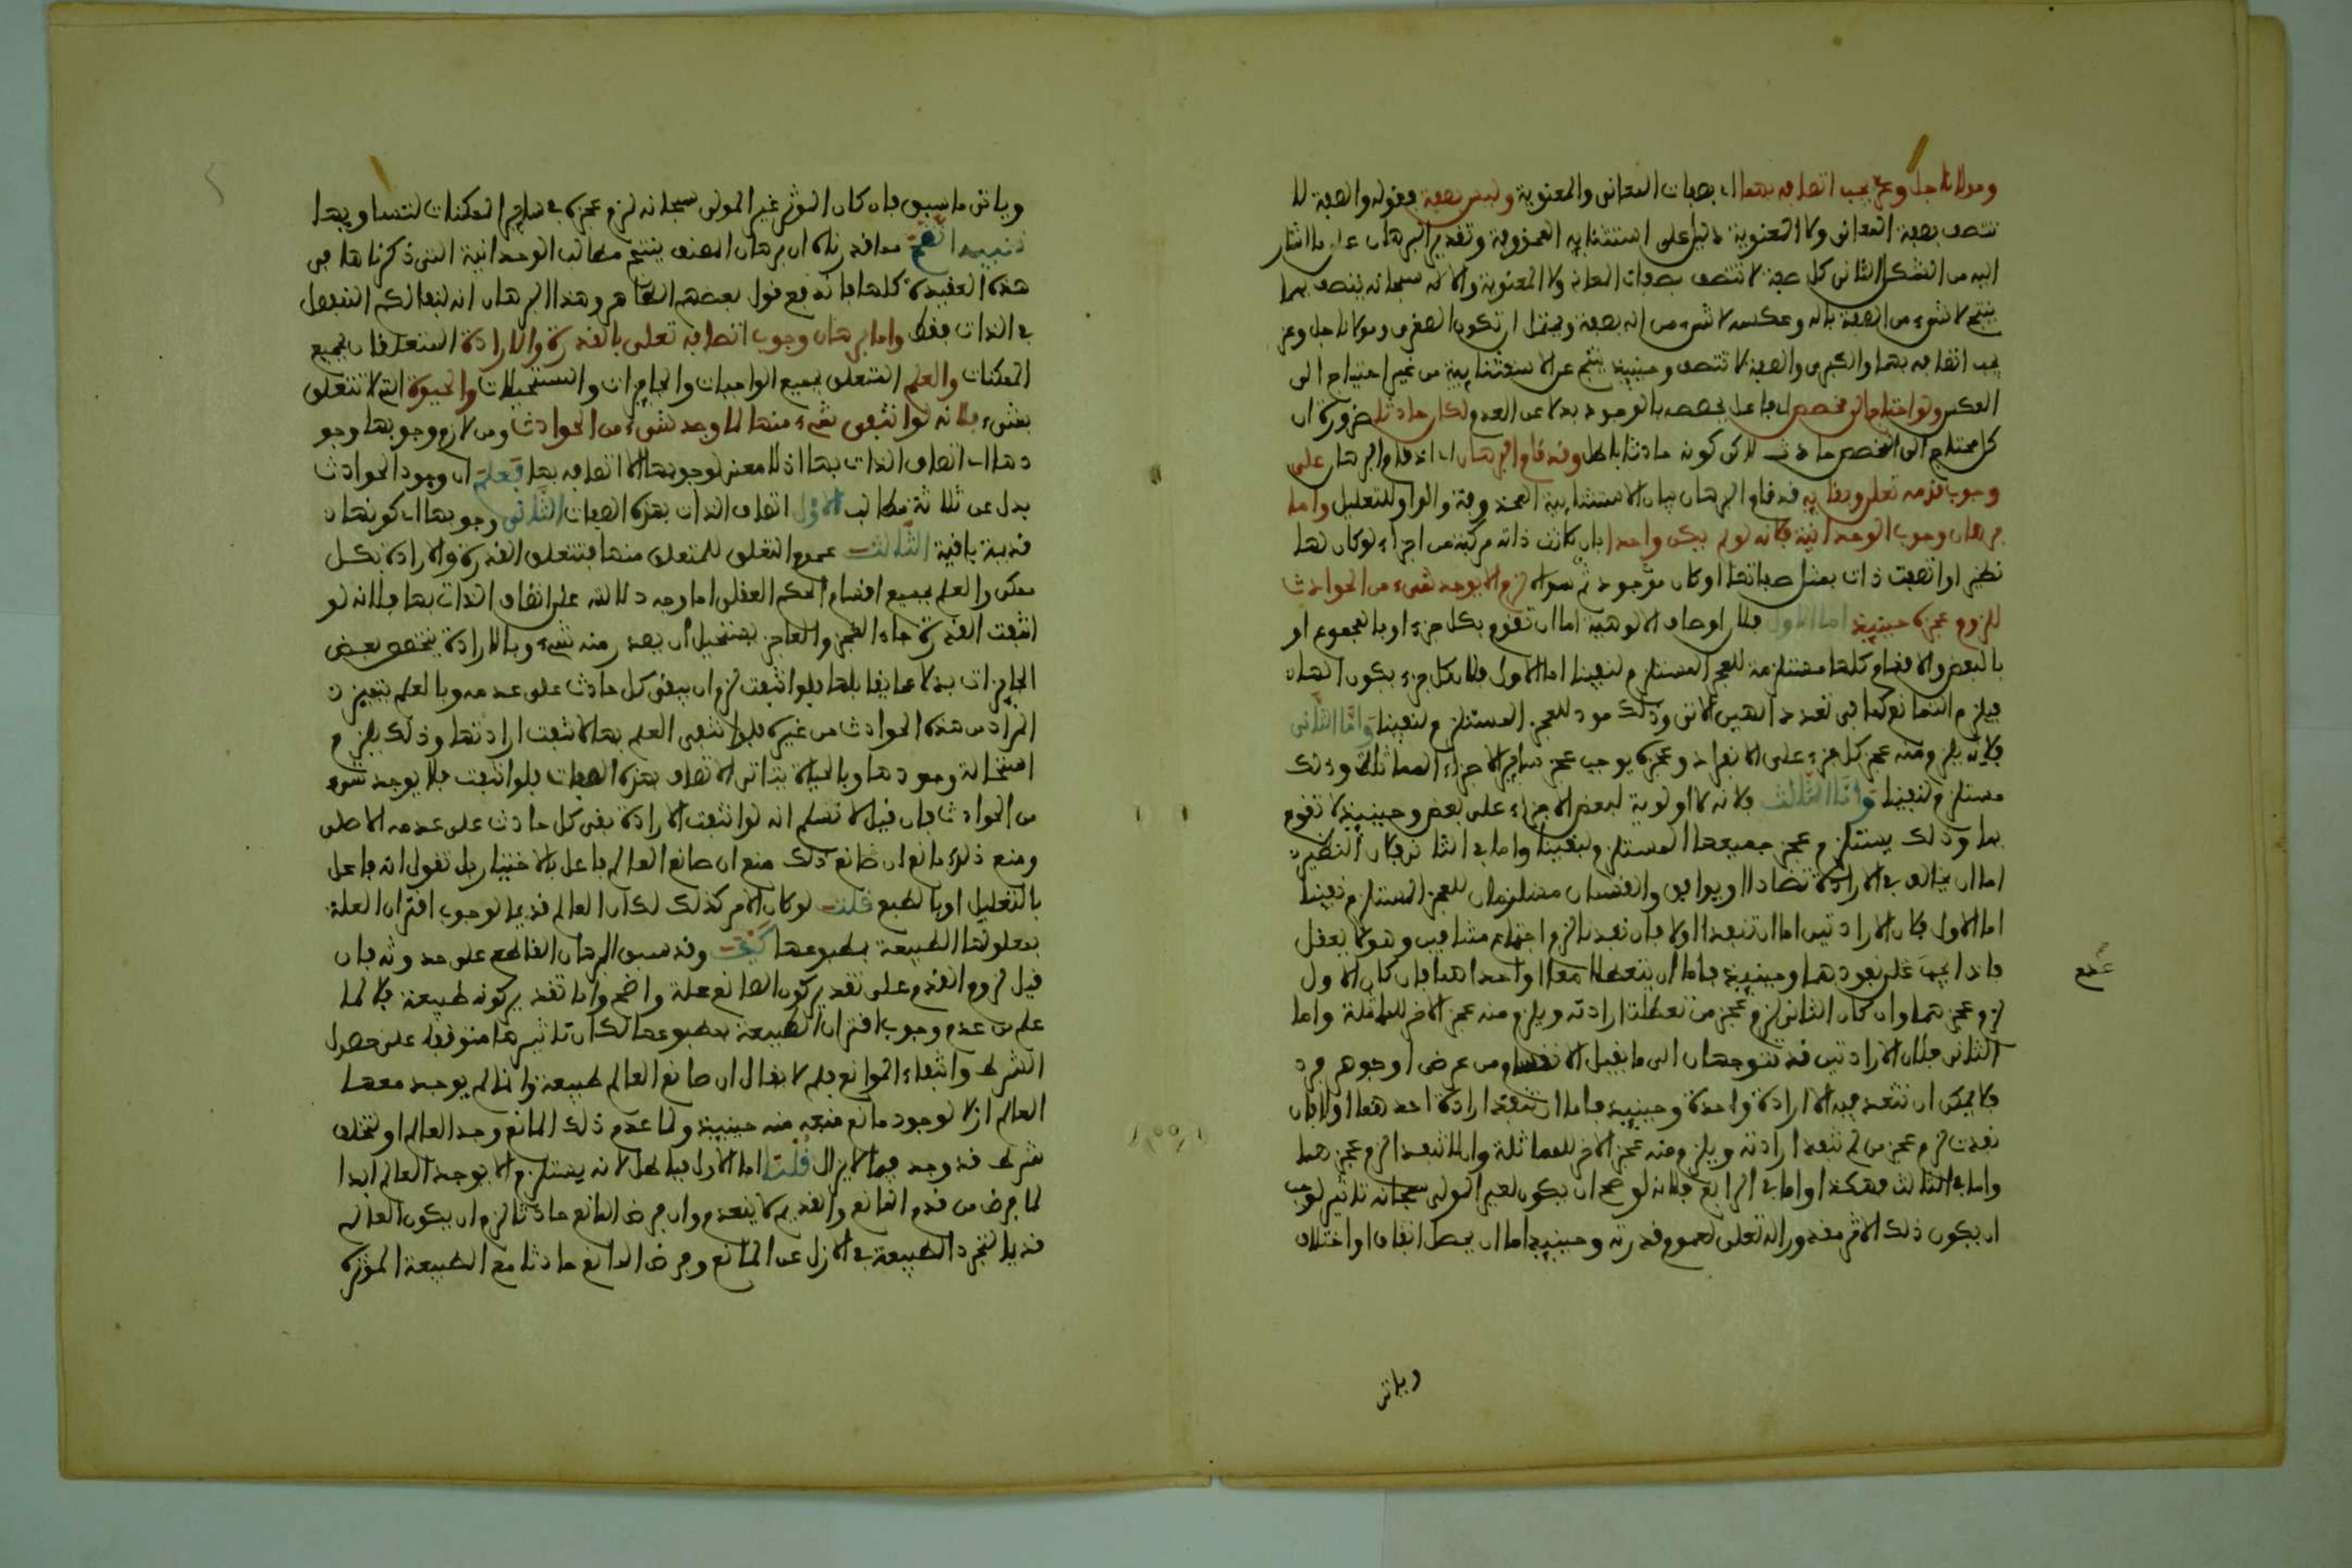 ومولانا جل وعز يجب اتصافه بهما اي بصفات المعاني والمعنوية وليس بصفة فقوله والصفة لا
تتصف بصفة المعاني ولا المعنوية دليل على استثنائيه المحذوفة وتقدير البرهان على ما اشار
اليه من الشكل الثاني كل صفة لا تتصف بصفات المعاني ولا المعنوية والاله سبحانه يتصف بهما
ينتج لا شيء من الصفة باله وعكسه لا شيء من اله بصفة ويحتمل ان تكون الصغرى ومولانا جل وعز
يجب اتصافه بهما والكبرى والصفة لا تتصف وحينئذ ينتج عن الاستثنائية من غير احتياج الى
العكس ولو احتاج الى مخصص اي فاعل يخصصه بالوجود بدلا عن العدم لكان حادثا ضرورة ان
كل محتاج الى المخصص حادث لاكن كونه حادثا باطل وقد قام البرهان اي اذ قام البرهان على
وجوب قدمه تعلى وبقائه قد قام البرهان بيان الاستثنائية المحذوفة والواو للتعليل واما
برهان وجوب الوحدانية فلانه لو لم يكن واحدا بان كانت ذاته مركبة من اجزاء او كان لها
نظير او اتصفت ذات بمثل صفاتها او كان موجود ثم سواه لزم الا يوجد شيء من الحوادث
للزوم عجزه حينئذ اما الاول فلان اوصاف الالوهية اما ان تقوم بكل جزء او بالمجموع او
بالبعض والاقسام كلها مستلزمة للعجز المستلزم لنفينا اما الاول فلان كل جزء يكون الها
فيلزم التمانع كما في تعدد الهين الاتي وذلك مود للعجز المستلزم لنفينا واما الثاني
فلانه يلزم منه عجز كل جزء على الانفراد وعجزه يوجب عجز ساير الاجزاء المماثلة وذلك
مستلزم لنفينا واما الثالث فلانه لا اولوية لبعض الاجزاء على بعض وحينئذ لا تقوم
بها وذلك يستلزم عجز جميعها المستلزم لنفينا واما في الثاني فلان النظيرين
اما ان يخالف في الارادة تضادا او يوافق والقسمان مستلزمان للعجز المستلزم نفينا
اما الاول فلان الارادتين اما ان تنفدا اولا فان نفدتا لزم اجتماع متنافيين وهو لا يعقل
فاذا يجب عدم نفودهما وحينئذ فاما ان يتعطلا معا او احداهما فان كان الاول
عدم
لزم عجزهما وان كان الثاني لزم عجز من تعطلت ارادته ويلزم منه عجز الاخر للمماثلة واما
الثاني فلان الارادتين قد تتوجهان الى ما يقبل الانقسام من عرض او جوهر فرد
فلا يمكن ان تنفد فيه الا ارادة واحدة وحينئذ فاما ان تنفد ارادة احدهما اولا فان
نفدت لزم عجز من لم تنفد ارادته ويلزم منه عجز الاخر للمماثلة وان لم تنفد لزم عجزهما
واما في الثالث فهكذا واما في الرابع فلانه لو صح ان يكون لغير المولى سبحانه تاثير لوجب
ان يكون ذلك الاثر مقدورا له تعلى لعموم قدرته وحينئذ اما ان يحصل اتفاق او اختلاف
وياتي
وياتي ما سبق فان كان الموثر غير المولى سبحانه لزم عجزه في ساير الممكنات لتساويها
تنبيه اتضح مما قدرناه ان برهان المصنف ينتج مطالب الوحدانية التي ذكرناها في
هذه العقيدة كلها فاندفع قول بعضهم الظاهر وهذا البرهان انه لنفي الكم المنفصل
في الذات فقط واما برهان وجوب اتصافه تعلى بالقدرة والارادة المتعلقان بجميع
الممكنات والعلم المتعلق بجميع الواجبات والجايزات والمستحيلات والحيوة التي لا تتعلق
بشيء فلانه لو انتفى شيء منها لما وجد شيء من الحوادث ومن لازم وجوبها وجو
دها اي اتصاف الذات بها اذ لا معنى لوجوبها الا اتصافه بها فعلم ان وجود الحوادث
يدل عن ثلاثة مطالب الاول اتصاف الذات بهذه الصفات الثاني وجوبها اي كونها
قديمة باقية الثالث عموم التعلق للمتعلق منها فتتعلق القدرة والارادة بكل
ممكن والعلم بجميع اقسام الحكم العقلي اما وجه دلالته على اتصاف الذات بها فلانه لو
انتفت القدرة جاء العجز والعاجز يستحيل ان يصدر منه شيء وبالارادة يتخصص بعض
الجايزات بدلا عما يقابلها فلو انتفت لزم ان يبقى كل حادث على عدمه وبالعلم يتميز
المراد من هذه الحوادث من غيره فلو انتفى العلم بها لانتفت ارادتها وذلك يلزم
استحالة وجودها وبالحياة يتاتى الاتصاف بهذه الصفات فلو انتفت فلا يوجد شيء
من الحوادث فان قيل لا نسلم انه لو انتفت الارادة بقى كل حادث على عدمه الاصلي
ومنع ذلك مانع ان صانع ذلك منع ان صانع العالم فاعل بالاختيار بل نقول انه فاعل
بالتعليل او بالطبع قلت لو كان الامر كذلك لكان العالم قديما لوجوب اقتران العلة
بمعلولها الطبيعة بمطبوعها كيف وقد سبق البرهان القاطع على حدوثه فان
قيل لزوم القدم على تقدير كون الصانع علة واضح واما تقدير كونه طبيعة فلا لما
علم من عدم وجوب اقتران الطبيعة بمطبوعها لكان تاثيرها متوقفا على حصول
الشرط وانتفاء الموانع فلم لا يقال ان صانع العالم طبيعة وانما لم يوجد معها
العالم ازلا لوجود مانع منعه منه حينئذ ولما عدم ذلك المانع وجد العالم او لتخلف
شرط قد وجد فيما لا يزال قلت اما الاول فباطل لانه يستلزم الا يوجد العالم ابدا
لما فرض من قدم المانع والقديم لا ينعدم وان فرض المانع حادثا لزم ان يكون العالم
قديما لتجرد الطبيعة في الازل عن المانع وفرض المانع حادثا مع الطبيعة الموثرة